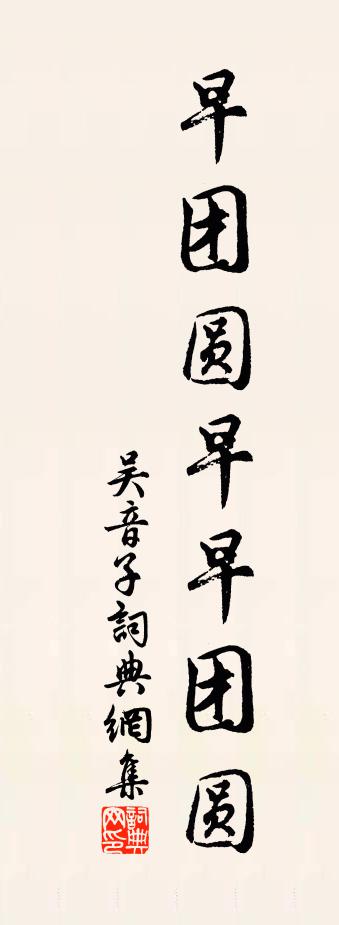 早团圆早早团圆
吴音子詞典網集
詞典网印